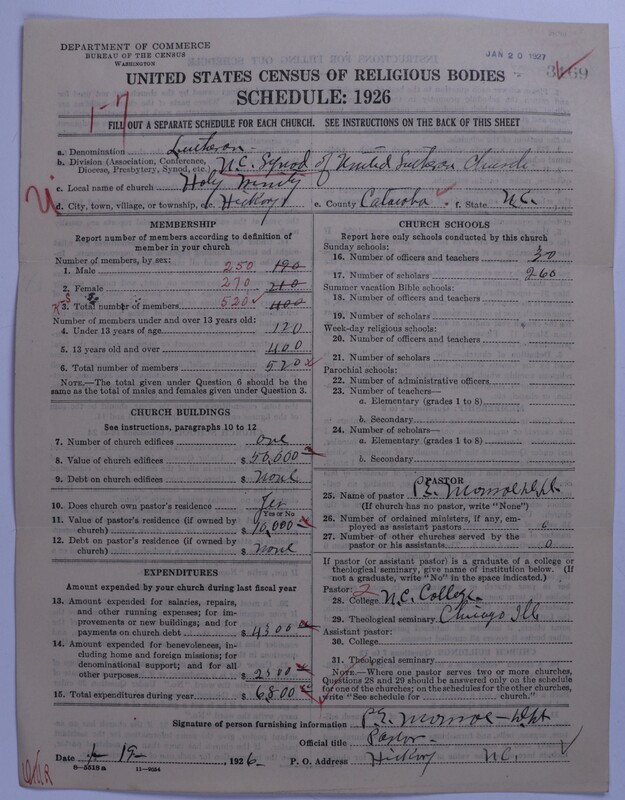 DEPARTMENT OF COMMERCE
BUREAU OF THE CENSUS
WASHINGTON
JAN 20 1927
UNITED STATES CENSUS OF RELIGIOUS BODIES
SCHEDULE: 1926
1-7
FILL OUT A SEPARATE SCHEDULE FOR EACH CHURCH. SEE INSTRUCTIONS ON THE BACK OF THIS SHEET
a. Denomination Lutheran
b. Division (Association, Conference, Diocese, Presbytery, Synod, etc.) N.C. Synod of United Lutheran Church
c. Local name of church Holy Trinity
d. City, town, village, or township, etc. Hickory e. County Catawba f. State N.C.
MEMBERSHIP
Report number of members according to definition of
member in your church
Number of members, by sex:
1. Male 250 190
2. Female 270 210
3. Total number of members 520 400
Number of members under and over 13 years old:
4. Under 13 years of age 120
5. 13 years old and over 400
6. Total number of members 520
NOTE.—The total given under Question 6 should be
same as the total of males and females given under Question 3.
CHURCH BUILDINGS
See instructions, paragraphs 10 to 12
7. Number of church edifices one
8. Value of church edifices $ 50,000
9. Debt on church edifices $ none
10. Does church own pastor's residence Yes
Yes or No
11. Value of pastor's residence (if owned by
church) $ 10,000
12. Debt on pastor's residence (if owned by
church) $ none
EXPENDITURES
Amount expended by your church during last fiscal year
13. Amount expended for salaries, repairs,
and other running expenses; for im-
provements or new buildings; and for
payments on church debt $ 4300
14. Amount expended for benevolences, in-
cluding home and foreign missions; for
denominational support; and for all
other purposes $ 2500
15. Total expenditures during year $ 6800
CHURCH SCHOOLS
Report here only schools conducted by this church
Sunday schools:
16. Number of officers and teachers 30
17. Number of scholars 260
Summer vacation Bible schools:
18. Number of officers and teachers
19. Number of scholars
Week-day religious schools:
20. Number of officers and teachers
21. Number of scholars
Parochial schools:
22. Number of administrative officers
23. Number of teachers—
a. Elementary (grades 1 to 8)
b. Secondary
24. Number of scholars—
a. Elementary (grades 1 to 8)
b. Secondary
PASTOR
25. Name of pastor P.E. Monroe
(If church has no pastor, write "None")
26. Number of ordained ministers, if any, em-
ployed as assistant pastors 0
27. Number of other churches served by the
pastor or his assistants 0
If pastor (or assistant pastor) is a graduate of a college or
theological seminary, give name of institution below. (If
not a graduate, write "No" in the space indicated.)
Pastor:
28. College N.C. College
29. Theological seminary Chicago Ill
Assistant pastor:
30. College
31. Theological seminary
NOTE.—Where one pastor serves two or more churches,
Questions 28 and 29 should be answered only on the schedule
for one of the churches; on the schedules for the other churches,
write "See schedule for church."
Signature of person furnishing information P.E. Monroe
Official title Pastor
Date 19, 1926 P. O. Address Hickory N.C.
8—3318a 11—9084